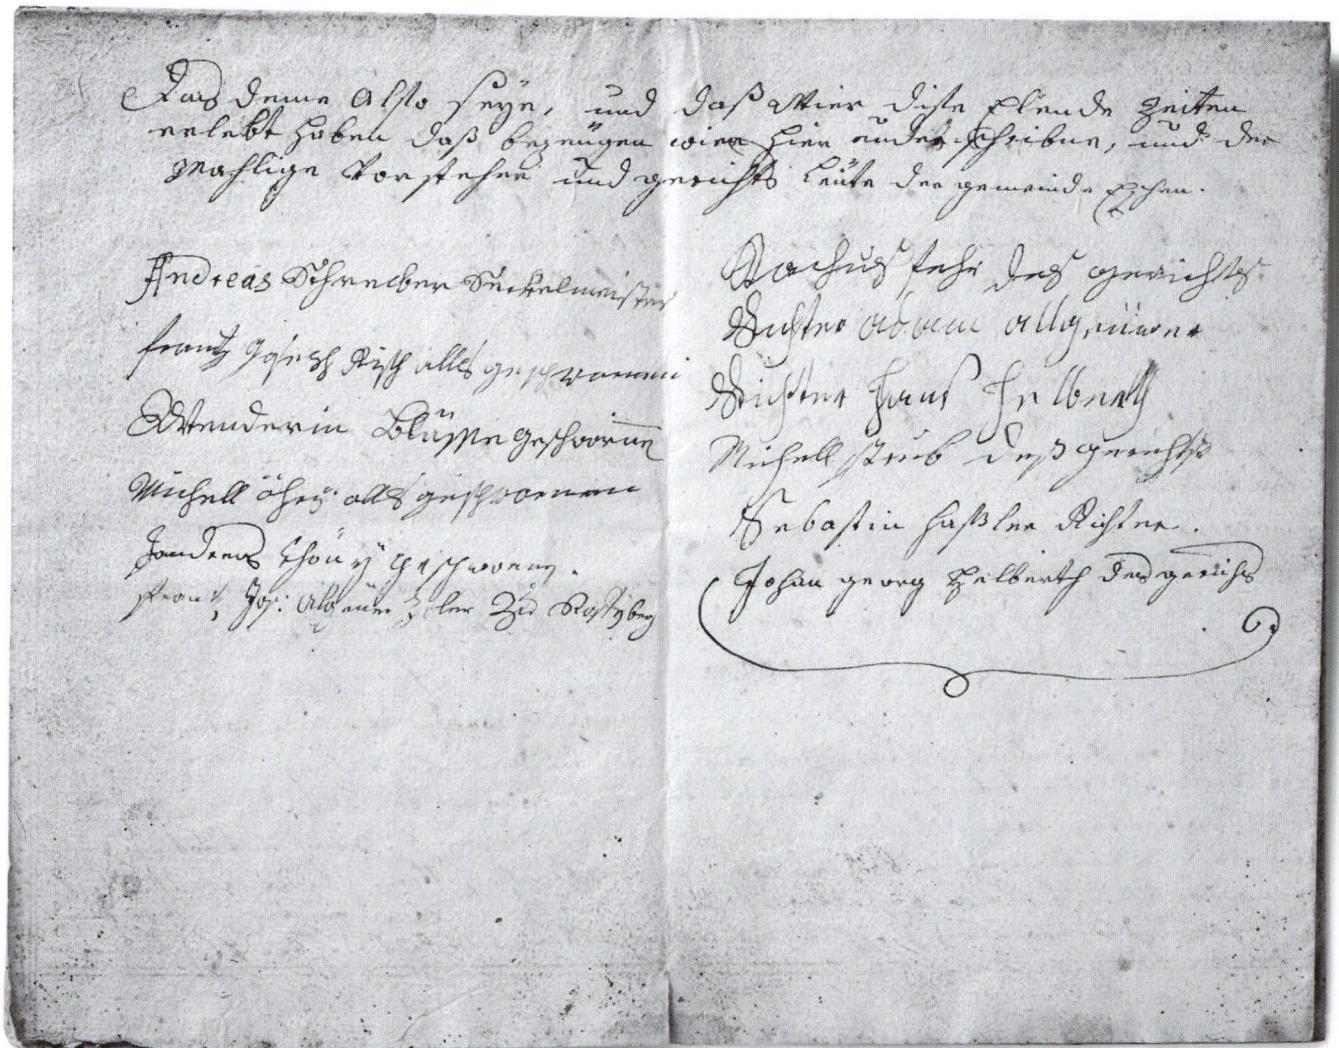 Das deme Also seye, und daß Wier dise Elende Zeiten
erlebt haben daß bezeugen wier hier underschribne, und der
Mahlige Vorsteher und gerichts leüte der gemeinde Eschen.
Andreas Schreiber Seckelmeister
frantz Joseph Risch alls geschworenen
Wenderin Blässe geschworne
Michell öhri alls geschworenen
Jondreas Schöü geschworne.
frantz Jos: Algeüer Zoler Zu
Rochus fehr des gerichts
Richter adam allgeüwer
Richter hans helbert
Michell straub deß gerichts
Sebastin haßler Richter.
Johan georg helberth des gerichts